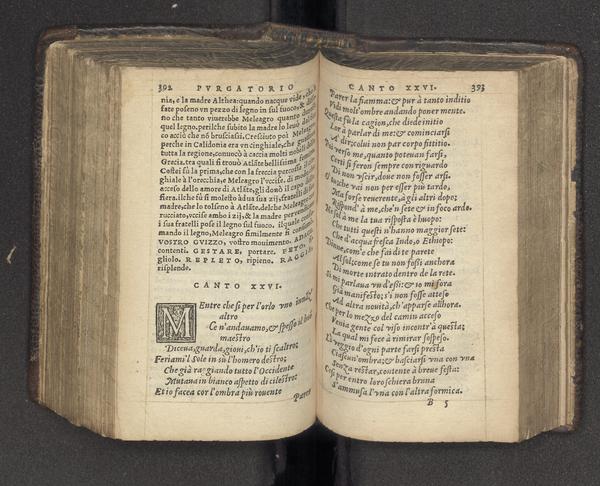 392 PVRGATORIO
nia, e la madre Althea: quando nacque vide, che
fate poseno vn pezzo di segno in sul fuoco, & dis-
no che tanto viuerebbe Meleagro quanto
quel legno, perilche subito la madre lo leuò dal
co acciò che nõ brusciassi, Cresciuto poi Meleagro
perche in Calidonia era vn cinghiale, che
tutta la regione, conuocò à caccia molti nobili
Grecia, tra quali si trouò Atlãte bellissima
Costei fù la prima, che con la freccia percosse il
ghiale à l'orecchia, e Meleagro l'vccise. di modo
acceso dello amore di Atlãte, gli donò il capo
fiera. ilche fù sì molesto à dua sua zij, fratelli di sua
madre, che lo tolseno à Atlãte. delche Meleagro
rucciato, vccise ambo i zij, & la madre per vendicare
i sua fratelli pose il legno sul fuoco. ilquale
mando il legno, Meleagro similmente si
VOSTRO GVIZZO, vostro mouimento.
contenti. GESTARE, portare. FETO,
gliolo. REPLETO, ripieno.
risplende.
CANTO XXVI.
MEntre che sì per l'orlo vno innãzi
altro
Ce n'andauamo, & spesso il buõ
maestro
Diceua, guarda, gioui, ch'io ti scaltro;
Feriami'l Sole in sù l'homero destro;
Che già raggiando tutto l'Occidente
Mutaua in bianco aspetto di cilestro;
Et io facea cor l'ombra più rouente
Parer
CANTO XXVI. 393
Parer la fiamma: & pur à tanto inditio
Vidi molt'ombre andando poner mente.
Questa fù la cagion, che diede initio
Lor à parlar di me: & cominciarsi
A dir; colui non par corpo fittitio.
Poi verso me, quanto poteuan farsi,
Certi si feron sempre con riguardo
Di non vscir, doue non fosser arsi.
O tu, che vai non per esser più tardo,
Ma forse reuerente, à gli altri dopo;
Rispond' à me, che'n sete & in foco ardo.
Ne sol à me la tua risposta è huopo:
Che tutti questi n'hanno maggior sete:
Che d'acqua fresca Indo, o Ethiopo:
Dinne, com'e che fai di te parete
Al sol; come se tu non fossi anchora
Di morte intrato dentro de la rete.
Si mi parlaua vn d'essi: & io mi fora
Già manifesto; s'i non fosse atteso
Ad altra nouità, ch'apparse allhora.
Che per lo mezzo del camin acceso
Venia gente col viso incontr'à questa;
La qual mi fece à rimirar sospeso.
Lì veggio d'ogni parte farsi presta
Ciascun'ombra; & basciarsi vna con vna
Senza restar, contente à breue festa:
Così per entro loro schiera bruna
S'ammusa l'vna con l'altra formica.
B 5